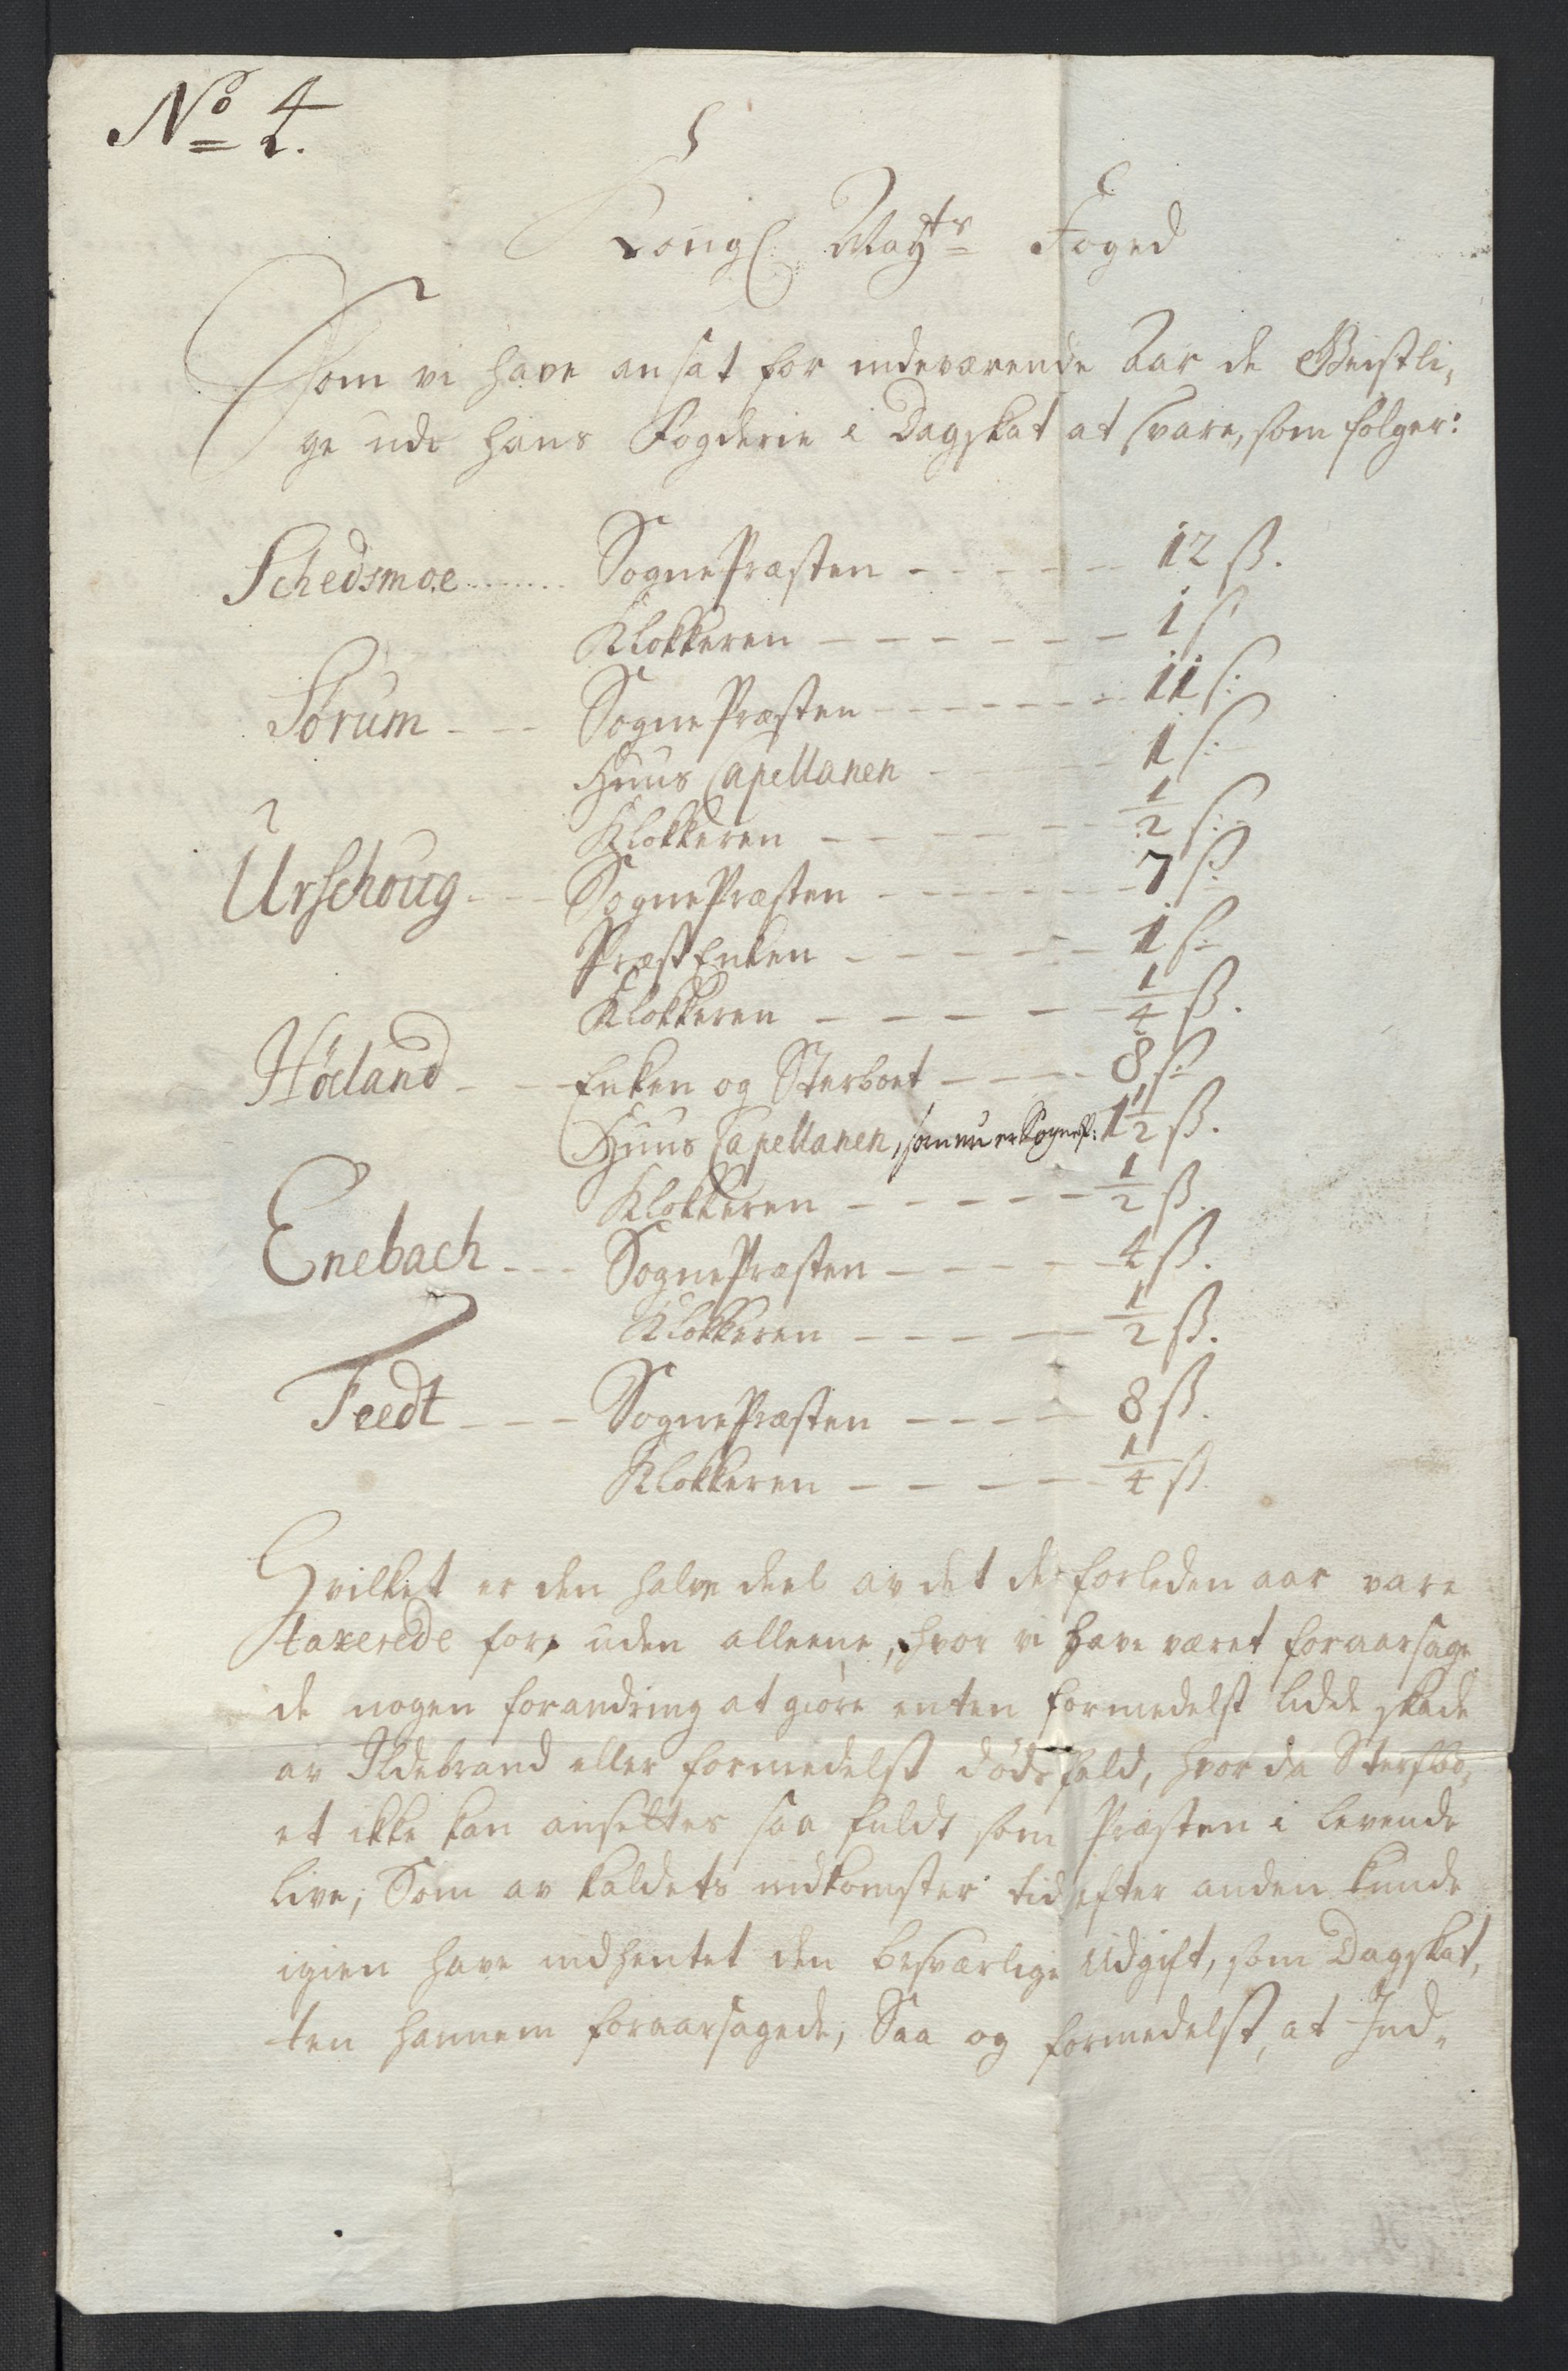 No 4.
Kongl Mayts Foged
Som vi have ansat for indeværende Aar de Geistli,
ge udi hans Fogderie i Dagskat at svare, som følger:
Schedsmoe....... SognePræsten ----- 12 ß.
Klokkeren ------ 1 ß
Sörum --- SognePræsten ------ 11 ß:
Huus Capellanen ---- 1 ß:
Klokkeren ----- 1/2 ß:
Urschoug --- SognePræsten ------ 7 ß:
PræstEnken ----- 1 ß:
Klokkeren ---- 1/4 ß.
Höland --- Enken og Sterboet ---- 8 ß:
Huus Capellanen, som nu er Sognep: 1 1/2 ß.
Klokkeren ----- 1/2 ß.
Enebach --- SognePræsten ----- 4 ß.
Klokkeren ---- 1/2 ß.
Feedt --- SognePræsten ---- 8 ß.
Klokkeren ---- 1/4 ß.
Hvilket er den halve deel av det de forleden aar vare
taxerede for, uden alleene, hvor vi have været foraarsage
de nogen forandring at giøre enten formedelst lidde skade
av Ildebrand eller formedelst dødsfald, hvor da Sterfbo,
et ikke kan ansettes saa fuldt som Præsten i levende
live, Som av kaldets indkomster tid efter anden kunde
igien have indhentet den besværlige Udgift, som Dagskat,
ten hannem foraarsagede, Saa og formedelst, at Ind,,